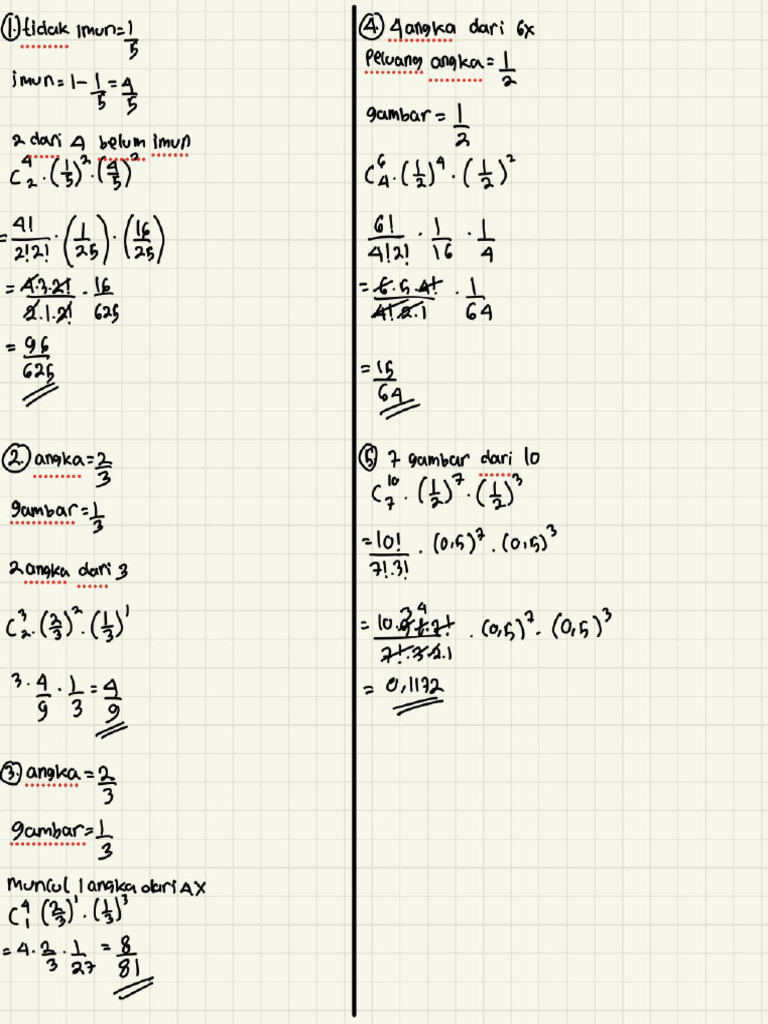 1. tidak imun = 1/5
imun = 1 - 1/5 = 4/5
2 dari 4 belum imun
C⁴₂ . (1/5)² . (4/5)²
= 4!/2!2! . (1/25) . (16/25)
= 4.3.2!/2.1.2! . 16/625
= 96/625
2. angka = 2/3
gambar = 1/3
2 angka dari 3
C³₂ . (2/3)² . (1/3)¹
3 . 4/9 . 1/3 = 4/9
3. angka = 2/3
gambar = 1/3
Muncul 1 angka dari 4X
C⁴₁ (2/3)¹ . (1/3)³
= 4 . 2/3 . 1/27 = 8/81
4. 4 angka dari 6x
Peluang angka = 1/2
gambar = 1/2
C⁶₄ . (1/2)⁴ . (1/2)²
6!/4!2! . 1/16 . 1/4
= 6.5.4!/4!.2.1 . 1/64
= 15/64
5. 7 gambar dari 10
C¹⁰₇ . (1/2)⁷ . (1/2)³
= 10!/7!.3! . (0,5)⁷ . (0,5)³
3 4
= 10.9.8.7!/7!.3.2.1 . (0,5)⁷ . (0,5)³
= 0,1172